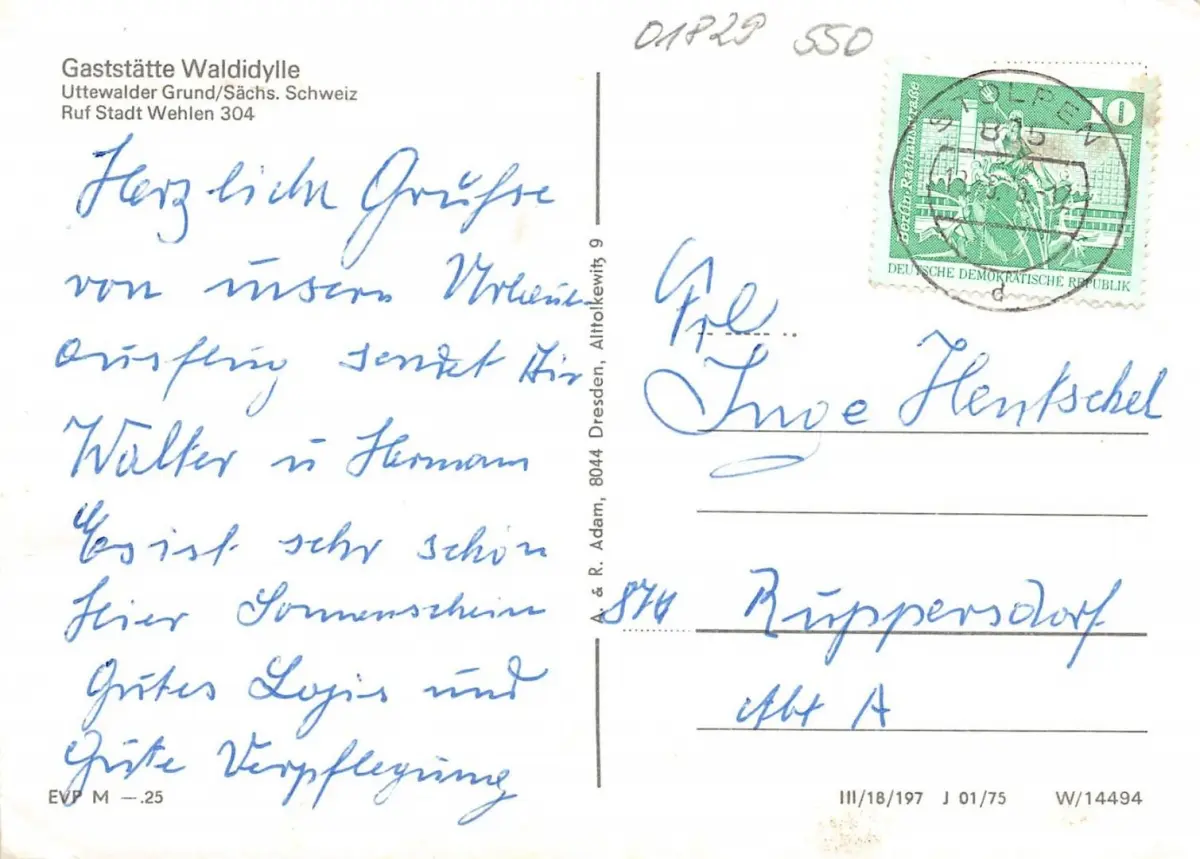 01829 550
Gaststätte Waldidylle
Uttewalder Grund/Sächs. Schweiz
Ruf Stadt Wehlen 304
Herzliche Grühse
von unsern Urlaub-
ausflug sendet Dir
Walter u Hermann
Es ist sehr schön
Hier Sonnenschein
Gutes Logis und
Gute Verpflegung
EVP M —.25
A. & R. Adam, 8044 Dresden, Alttolkewitz 9
10
Berlin, Rathausstraße
DEUTSCHE DEMOKRATISCHE REPUBLIK
STOLPEN
835
d
Frl
Inge Hentschel
Ruppersdorf
Abt A
III/18/197 J 01/75 W/14494